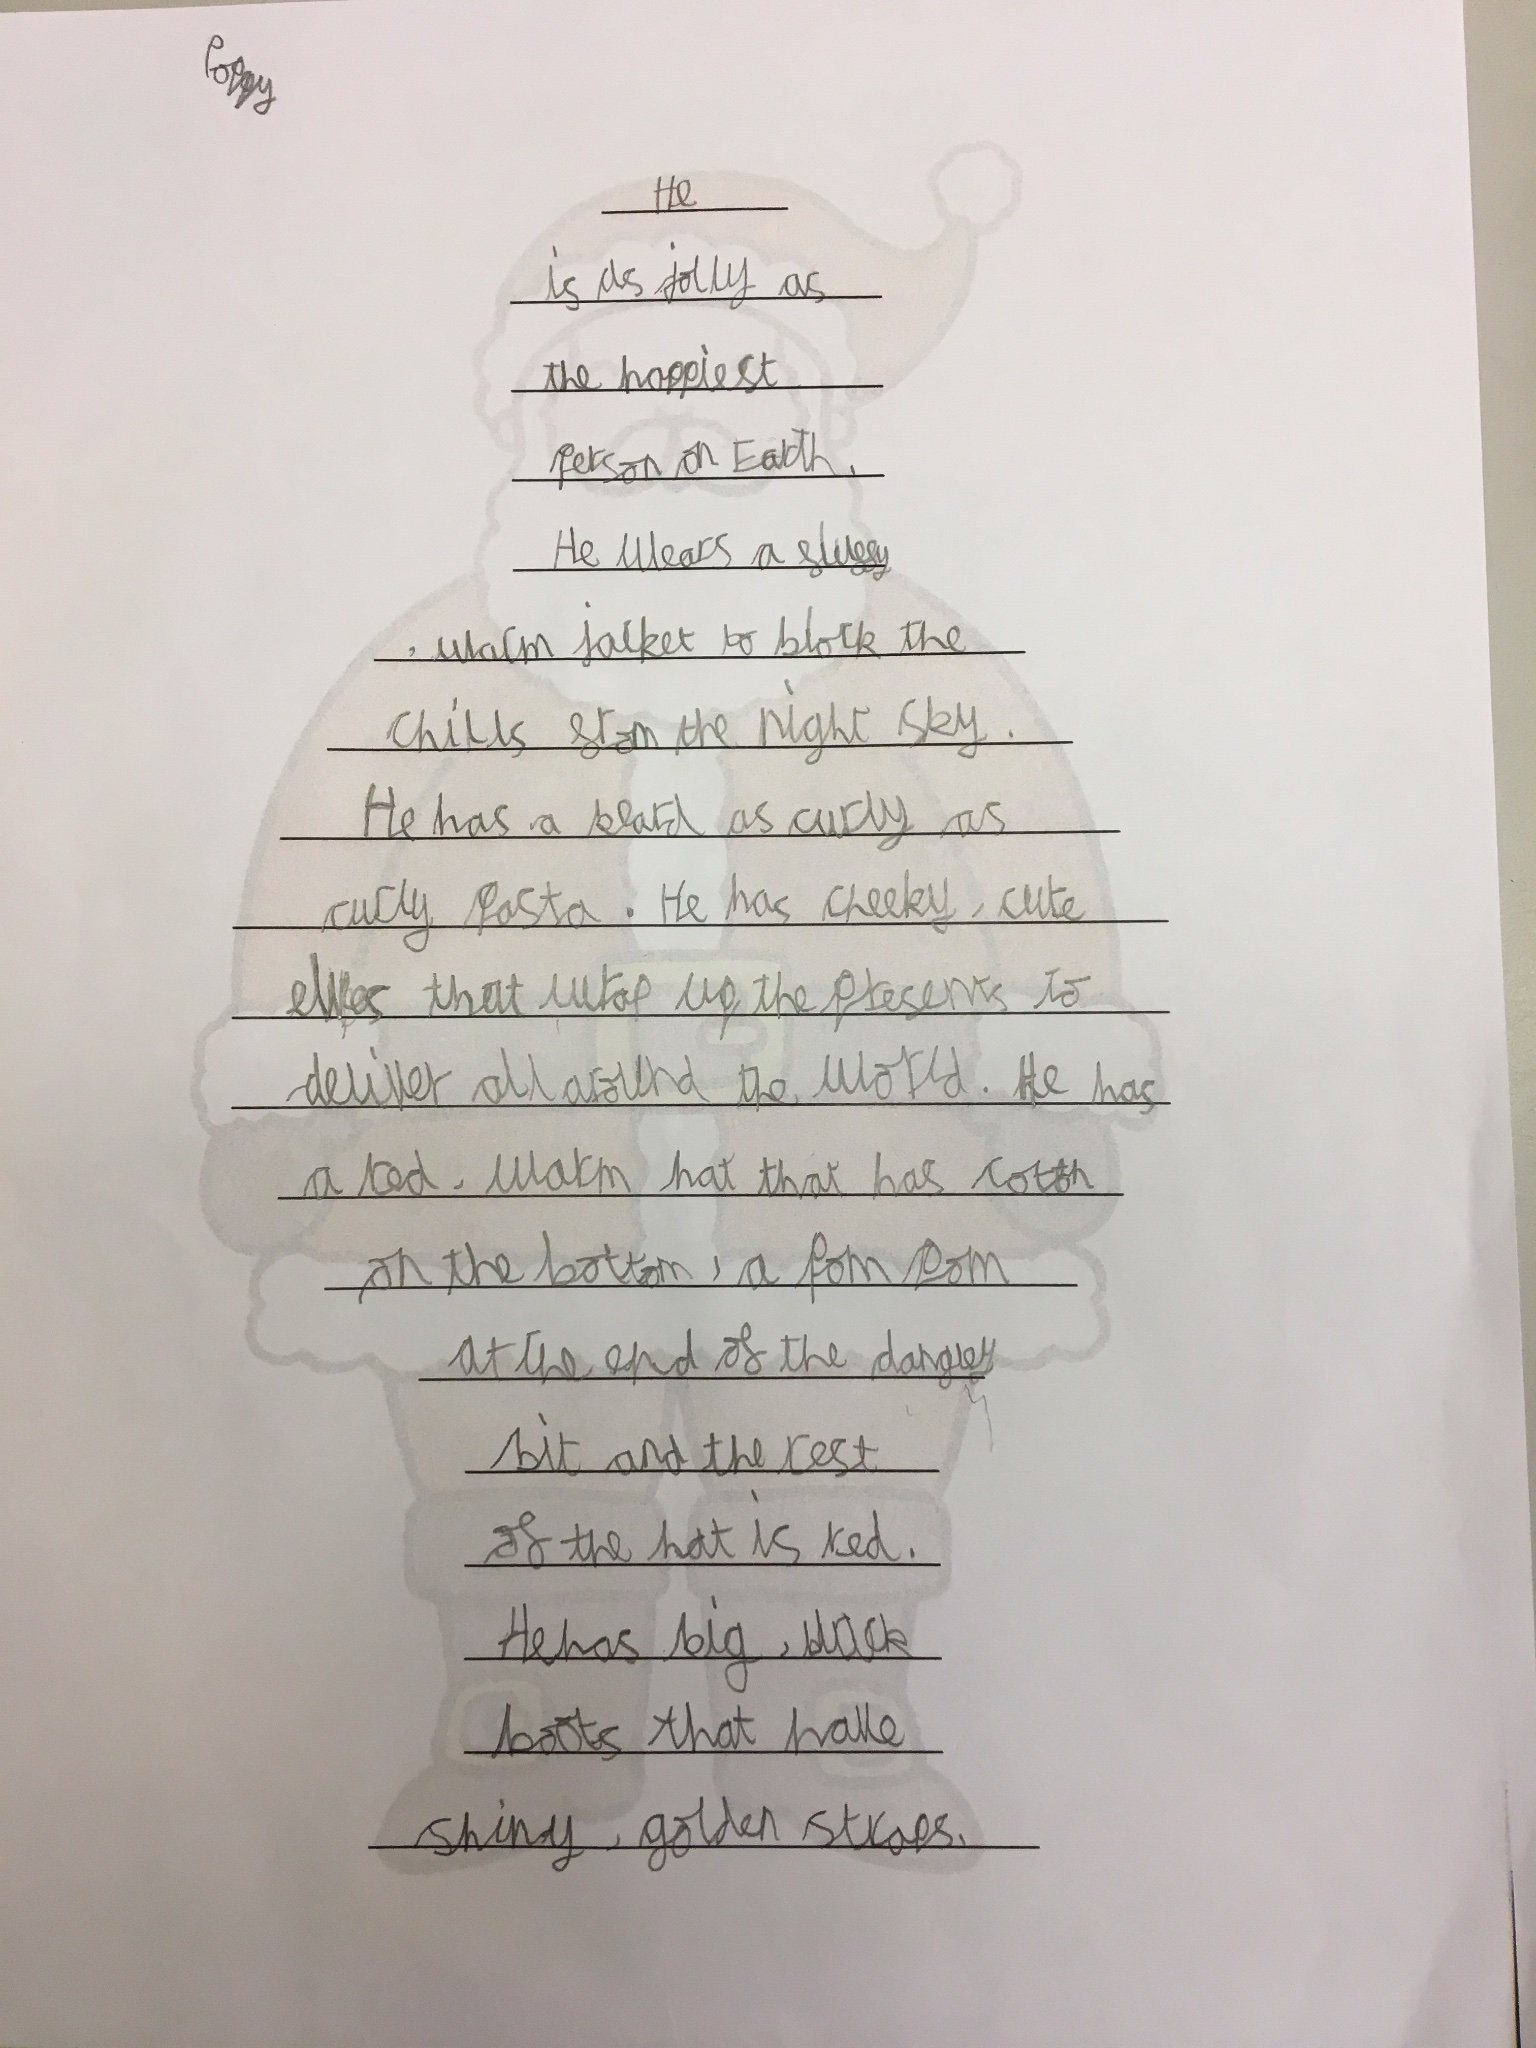 Poppy
He
is as jolly as
the happiest
person on Earth.
He wears a fluffy
, warm jacket to block the
chills from the night sky.
He has a beard as curly as
curly pasta. He has cheeky, cute
elves that wrap up the presents to
deliver all around the world. He has
a red, warm hat that has cotton
on the bottom, a pom pom
at the end of the dangley
bit and the rest
of the hat is red.
He has big, black
boots that have
shiny, golden straps.